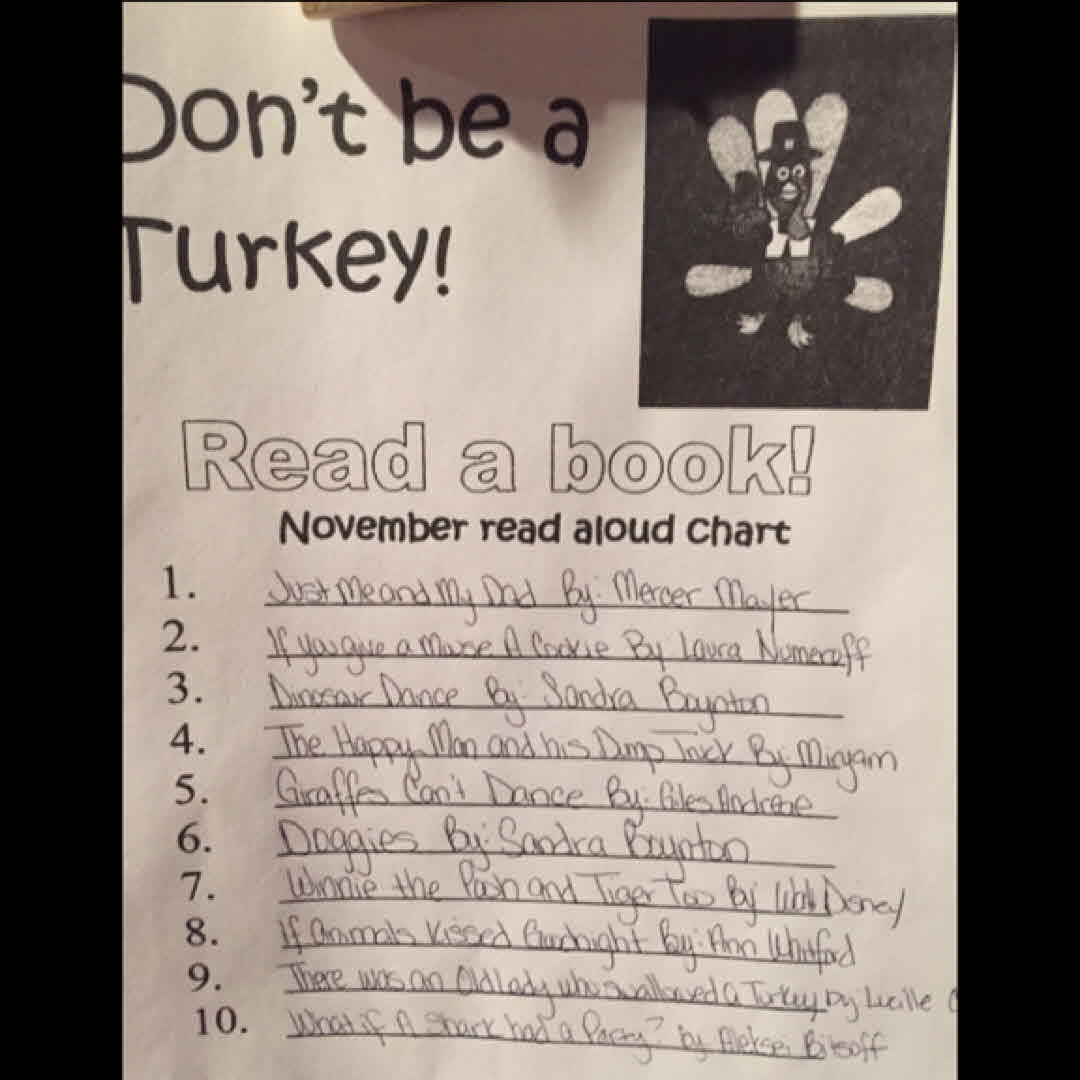 Don't be a
Turkey!
Read a book!
November read aloud chart
1. Just Me and My Dad By: Mercer Mayer
2. If you give a Mouse A Cookie By Laura Numeroff
3. Dinosaur Dance By: Sandra Boynton
4. The Happy Man and his Dump Truck By: Miryam
5. Giraffes Can't Dance By: Giles Andreae
6. Doggies By: Sandra Boynton
7. Winnie the Pooh and Tigger Too By Walt Disney
8. If Animals Kissed Goodnight By: Ann Whitford
9. There was an Old lady who swallowed a Turkey by Lucille
10. What if A Shark had a Party? by Aleksei Bitsoff